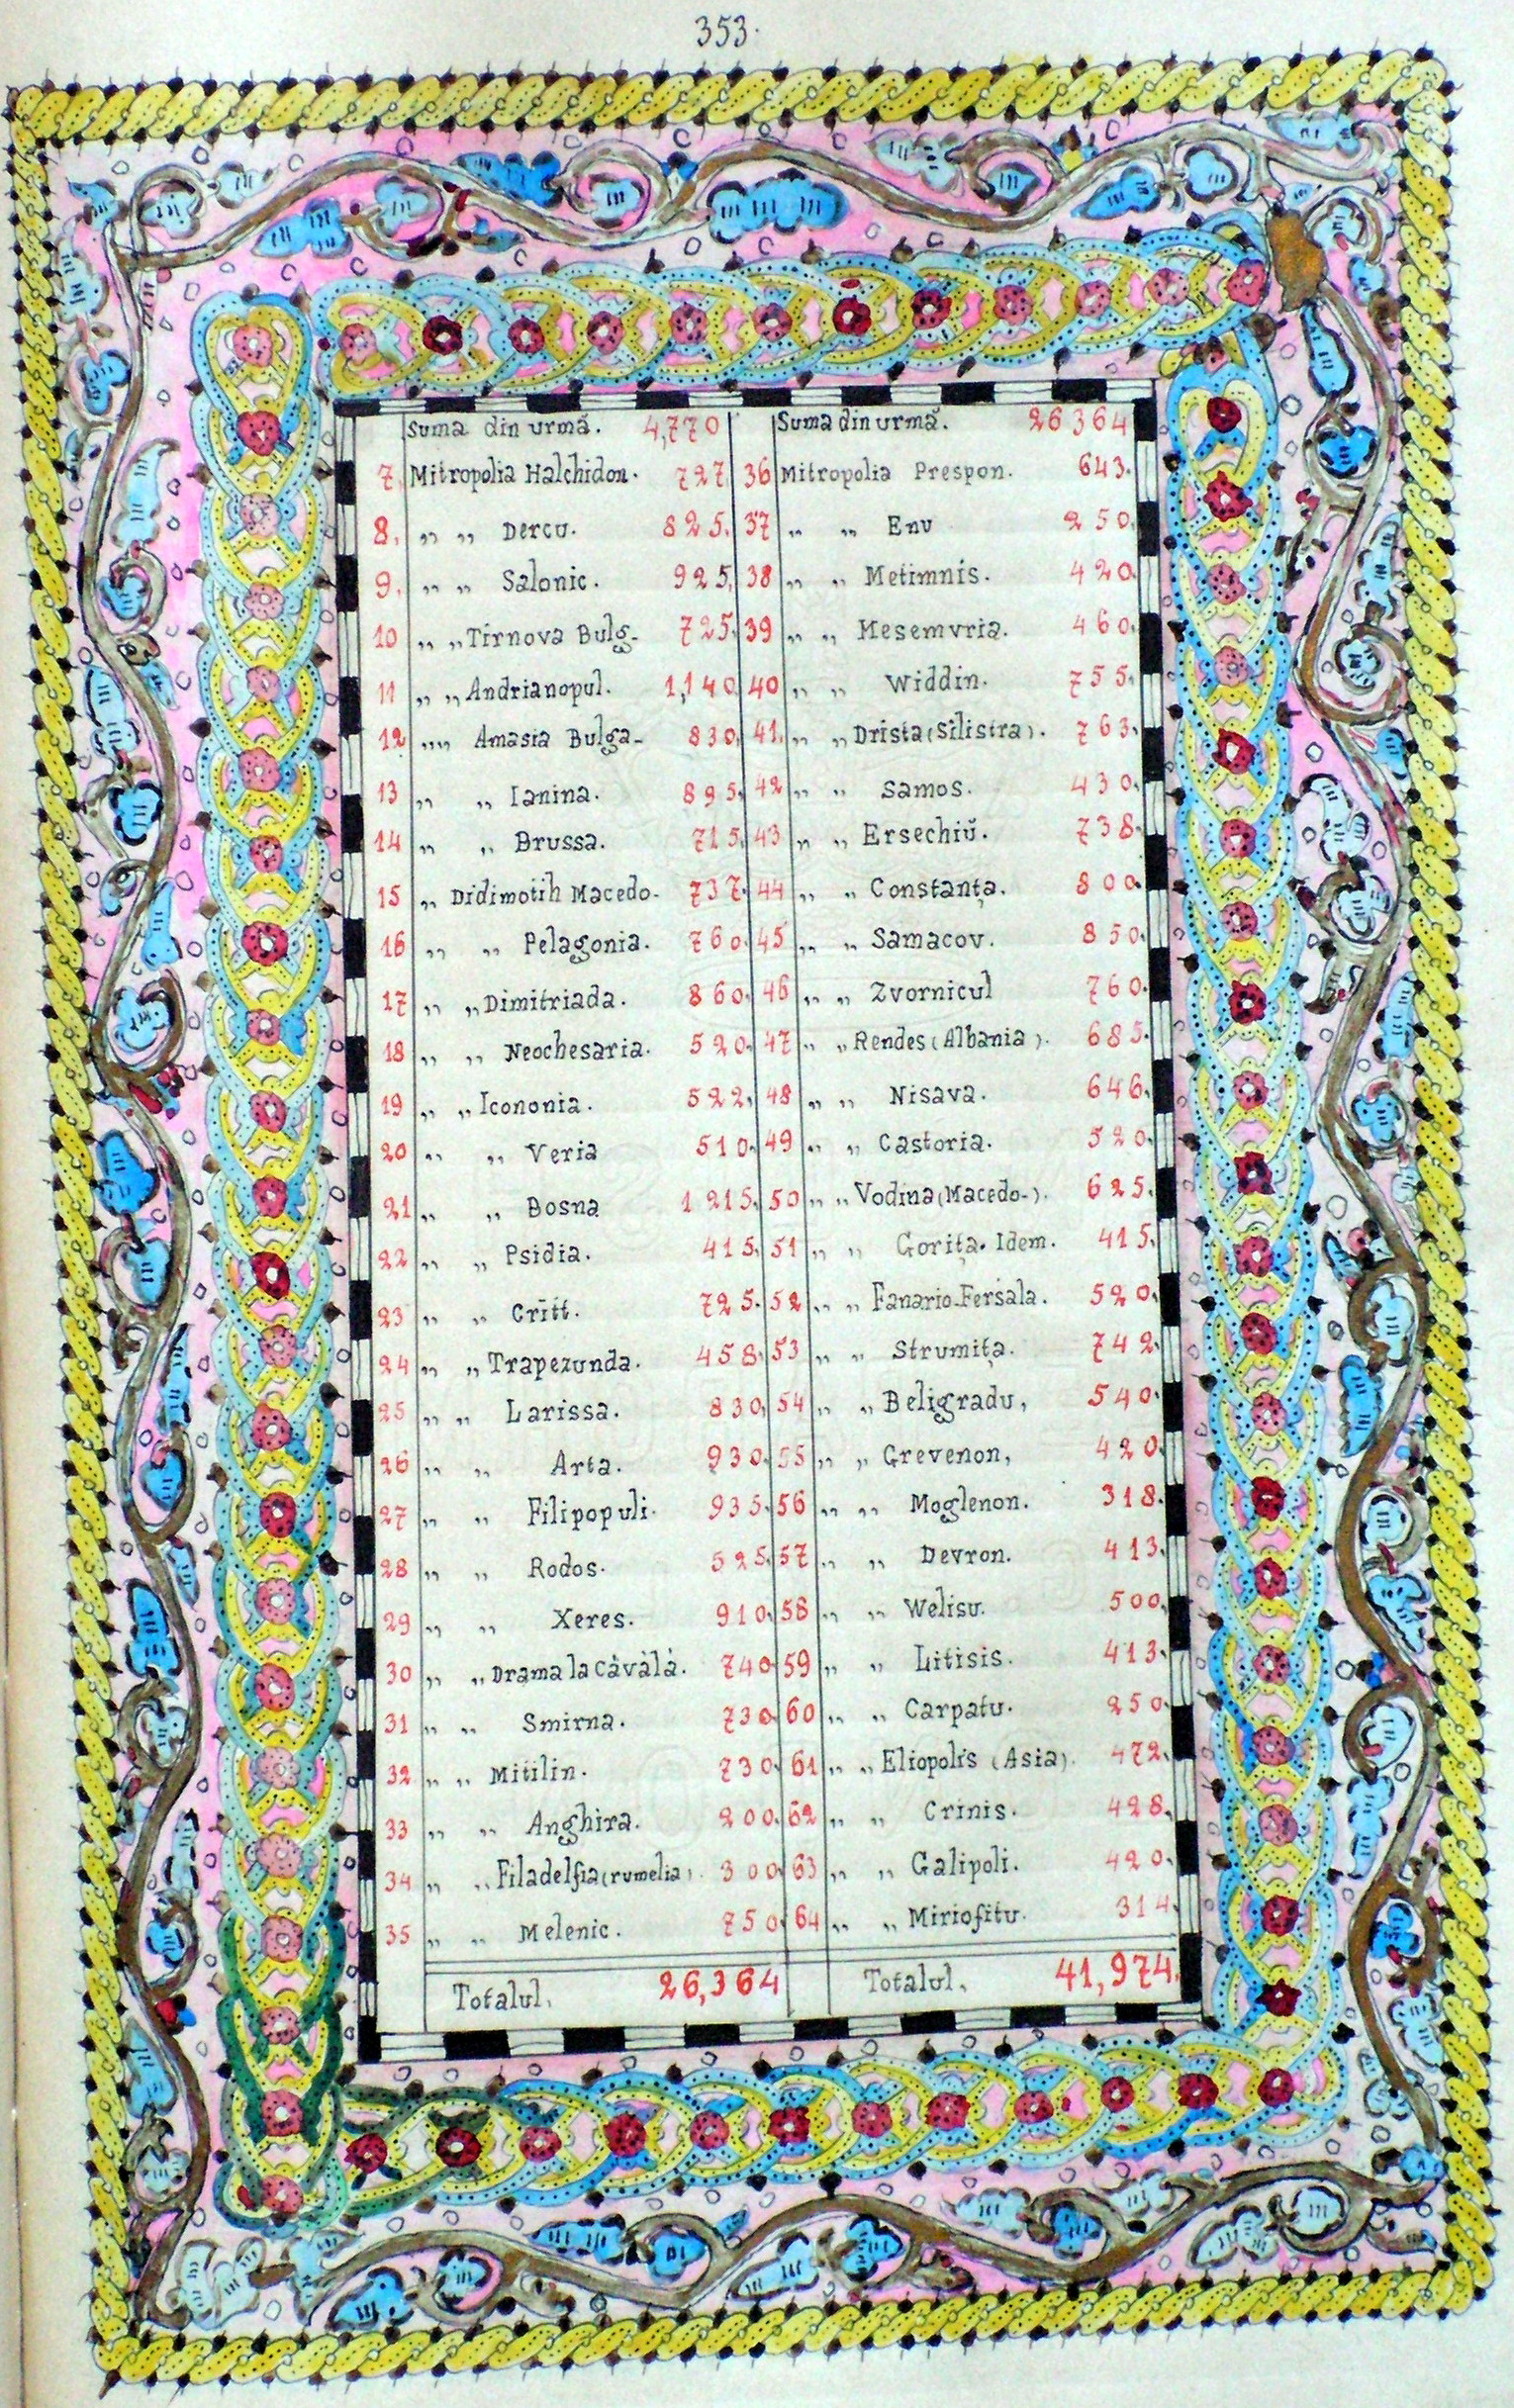 353.
Suma din urmă. 4,770
7. Mitropolia Halchidon. 727.
8. „ „ Dercu. 825.
9. „ „ Salonic. 925.
10 „ „ Tirnova Bulg- 725.
11 „ „ Andrianopul. 1,140
12 „ „ Amasia Bulga- 830.
13 „ „ Ianina. 895.
14 „ „ Brussa. 715.
15 „ Didimotih Macedo- 737.
16 „ „ Pelagonia. 760.
17 „ „ Dimitriada. 860.
18 „ „ Neochesaria. 520.
19 „ „ Icononia. 522.
20 „ „ Veria 510.
21 „ „ Bosna 1215.
22 „ „ Psidia. 415.
23 „ „ Critt. 725.
24 „ „ Trapezunda. 458.
25 „ „ Larissa. 830.
26 „ „ Arta. 930.
27 „ „ Filipopuli. 935.
28 „ „ Rodos. 525.
29 „ „ Xeres. 910.
30 „ „ Drama la Căvălă. 740
31 „ „ Smirna. 730
32 „ „ Mitilin. 730.
33 „ „ Anghira. 200.
34 „ „ Filadelfia (rumelia). 300
35 „ „ Melenic. 750.
Totalul. 26,364
Suma din urmă. 26364
36 Mitropolia Prespon. 643.
37 „ „ Enu 250.
38 „ „ Metimnis. 420.
39 „ „ Mesemvria. 460.
40 „ „ Widdin. 755.
41. „ „ Drista (Silistra). 763.
42 „ „ Samos. 430.
43 „ „ Ersechiŭ. 738.
44 „ „ Constanța. 800.
45 „ „ Samacov. 850.
46 „ „ Zvornicul 760.
47 „ „ Rendes (Albania). 685.
48 „ „ Nisava. 646.
49 „ „ Castoria. 520.
50 „ „ Vodina (Macedo-). 625.
51 „ „ Gorița. Idem. 415.
52 „ „ Fanario-Fersala. 520.
53 „ „ Strumița. 742.
54 „ „ Beligradu, 540.
55 „ „ Grevenon, 420.
56 „ „ Moglenon. 318.
57 „ „ Devron. 413.
58 „ „ Welisu. 500.
59 „ „ Litisis. 413.
60 „ „ Carpatu. 250.
61 „ „ Eliopolis (Asia). 472.
62 „ „ Crinis. 428.
63 „ „ Galipoli. 420.
64 „ „ Miriofitu. 314.
Totalul. 41,974.